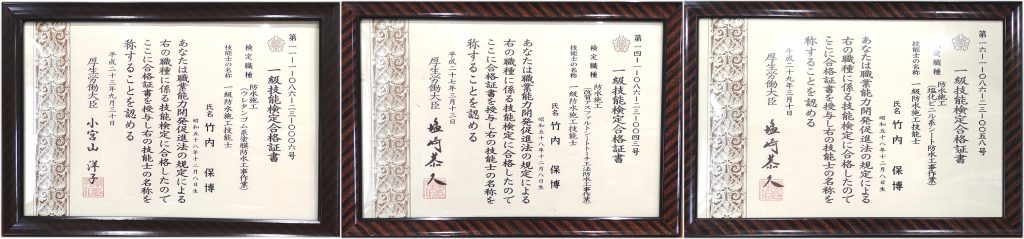 第一一-一-〇八六-二三-〇〇〇六号
一級技能検定合格証書
検定職種 防水施工
(ウレタンゴム系塗膜防水工事作業)
技能士の名称 一級防水施工技能士
氏名 竹内 保博
昭和五十八年十二月八日生
あなたは職業能力開発促進法の規定による
右の職種に係る技能検定に合格したので
ここに合格証書を授与し右の技能士の名称を
称することを認める
平成二十三年九月三十日
厚生労働大臣 小宮山 洋子
第一四-一-〇八六-二三-〇〇四三号
一級技能検定合格証書
検定職種 防水施工
(改質アスファルトシートトーチ工法防水工事作業)
技能士の名称 一級防水施工技能士
氏名 竹内 保博
昭和五十八年十二月八日生
あなたは職業能力開発促進法の規定による
右の職種に係る技能検定に合格したので
ここに合格証書を授与し右の技能士の名称を
称することを認める
平成二十七年三月十三日
厚生労働大臣 塩崎恭久
第一六-一-〇八六-二三-〇〇五八号
一級技能検定合格証書
検定職種 防水施工
(塩化ビニル系シート防水工事作業)
技能士の名称 一級防水施工技能士
氏名 竹内 保博
昭和五十八年十二月八日生
あなたは職業能力開発促進法の規定による
右の職種に係る技能検定に合格したので
ここに合格証書を授与し右の技能士の名称を
称することを認める
平成二十九年三月十日
厚生労働大臣 塩崎恭久